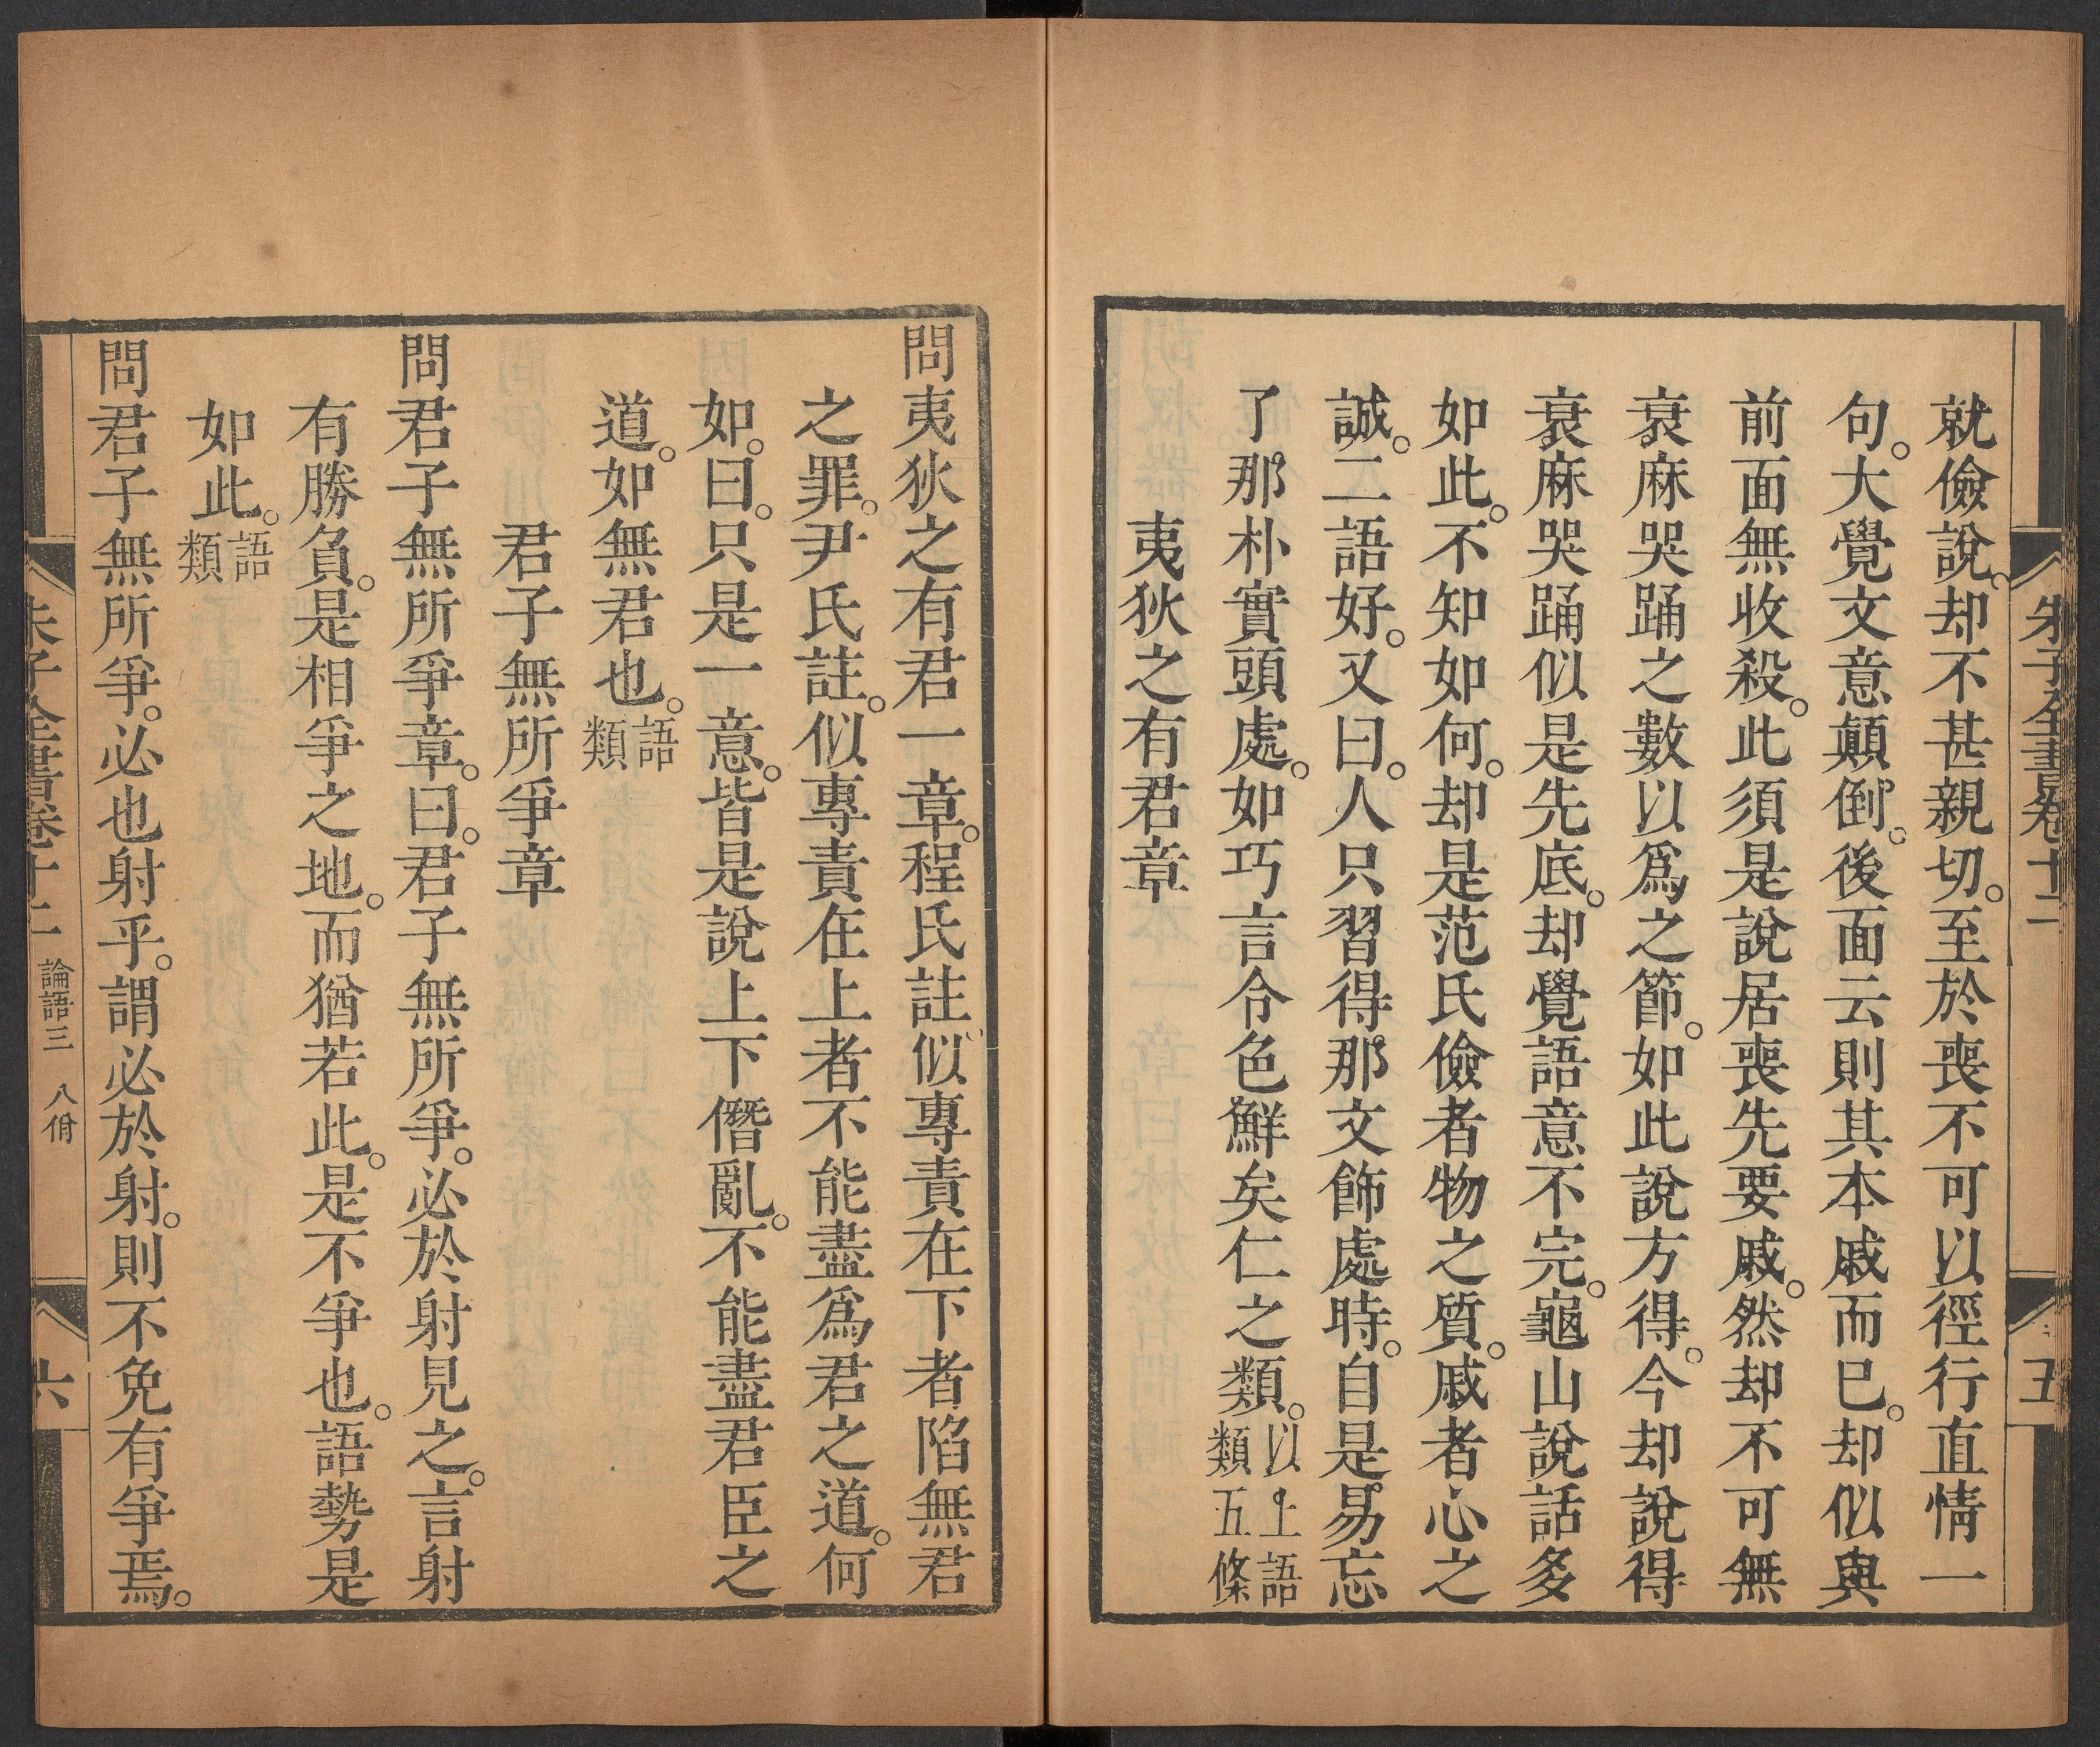 朱子全書卷十二
五
就儉說。却不甚親切。至於喪不可以徑行直情一
句。大覺文意顛倒。後面云則其本戚而已。却似與
前面無收殺。此須是說居喪先要戚。然却不可無
衰麻哭踊之數以爲之節。如此說方得。今却說得
衰麻哭踊似是先底。却覺語意不完。龜山說話多
如此。不知如何。却是范氏儉者物之質。戚者心之
誠。二語好。又曰。人只習得那文飾處時。自是易忘
了那朴實頭處。如巧言令色鮮矣仁之類。以上語
類五條
夷狄之有君章
問夷狄之有君一章。程氏註似專責在下者陷無君
之罪。尹氏註。似專責在上者不能盡爲君之道。何
如。曰。只是一意。皆是說上下僭亂。不能盡君臣之
道。如無君也。語
類
君子無所爭章
問君子無所爭章。曰。君子無所爭。必於射見之。言射
有勝負。是相爭之地。而猶若此。是不爭也。語勢是
如此。語
類
問君子無所爭。必也射乎。謂必於射。則不免有爭焉。
朱子全書卷十二 論語三 八佾
六